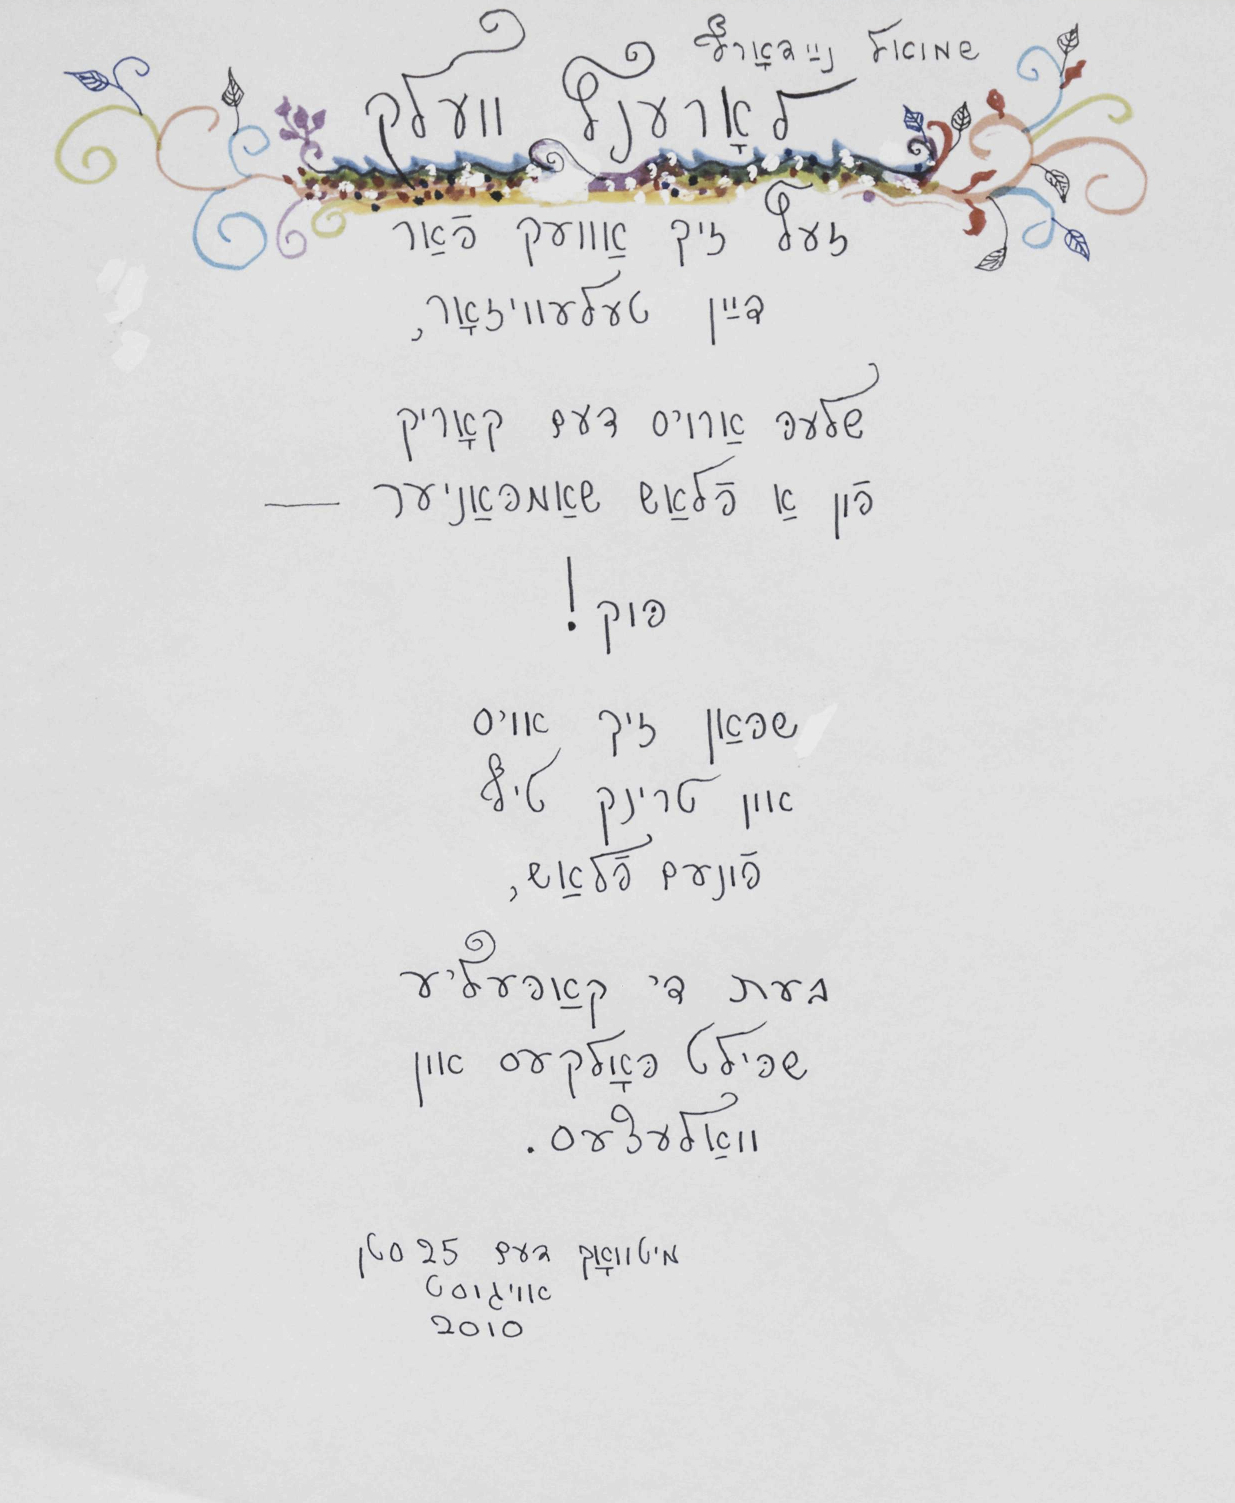 שמואל נײַדאָרף
לאָרענץ וועלק
זעץ זיך אַוועק פֿאַר
דײַן טעלעוויזאָר,
שלעפּ אַרויס דעם קאָריק
פֿון אַ פֿלאַש שאַמפּאַניער —
פּוק!
שפּאַן זיך אויס
און טרינק טיף
פֿונעם פֿלאַש,
בעת די קאַפּעליע
שפּילט פּאָלקעס און
וואַלעצעס.
מיטוואָך דעם 25סטן
אויגוסט
2010